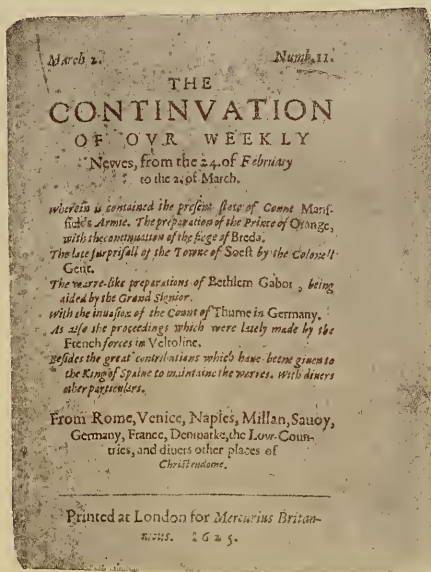 March 2. Numb. 11.
THE
CONTINVATION
OF OVR WEEKLY
Newes, from the 24. of February
to the 2. of March.
Wherein is contained the present state of Count Mans-
fields Armie. The preparation of the Prince of Orange,
with the continuation of the siege of Breda.
The late surprisall of the Towne of Soest by the Colonell
Gent.
The warre-like preparations of Bethlem Gabor, being
aided by the Grand Signior.
With the inuasion of the Count of Thurne in Germany.
As also the proceedings which were lately made by the
French forces in Veltoline.
Besides the great contributions which haue beene giuen to
the King of Spaine to maintaine the warres. With diuers
other particulars.
From Rome, Venice, Naples, Millan, Sauoy,
Germany, France, Denmarke, the Low-Coun-
tries, and diuers other places of
Christendome.
Printed at London for Mercurius Britan-
nicus. 1625.